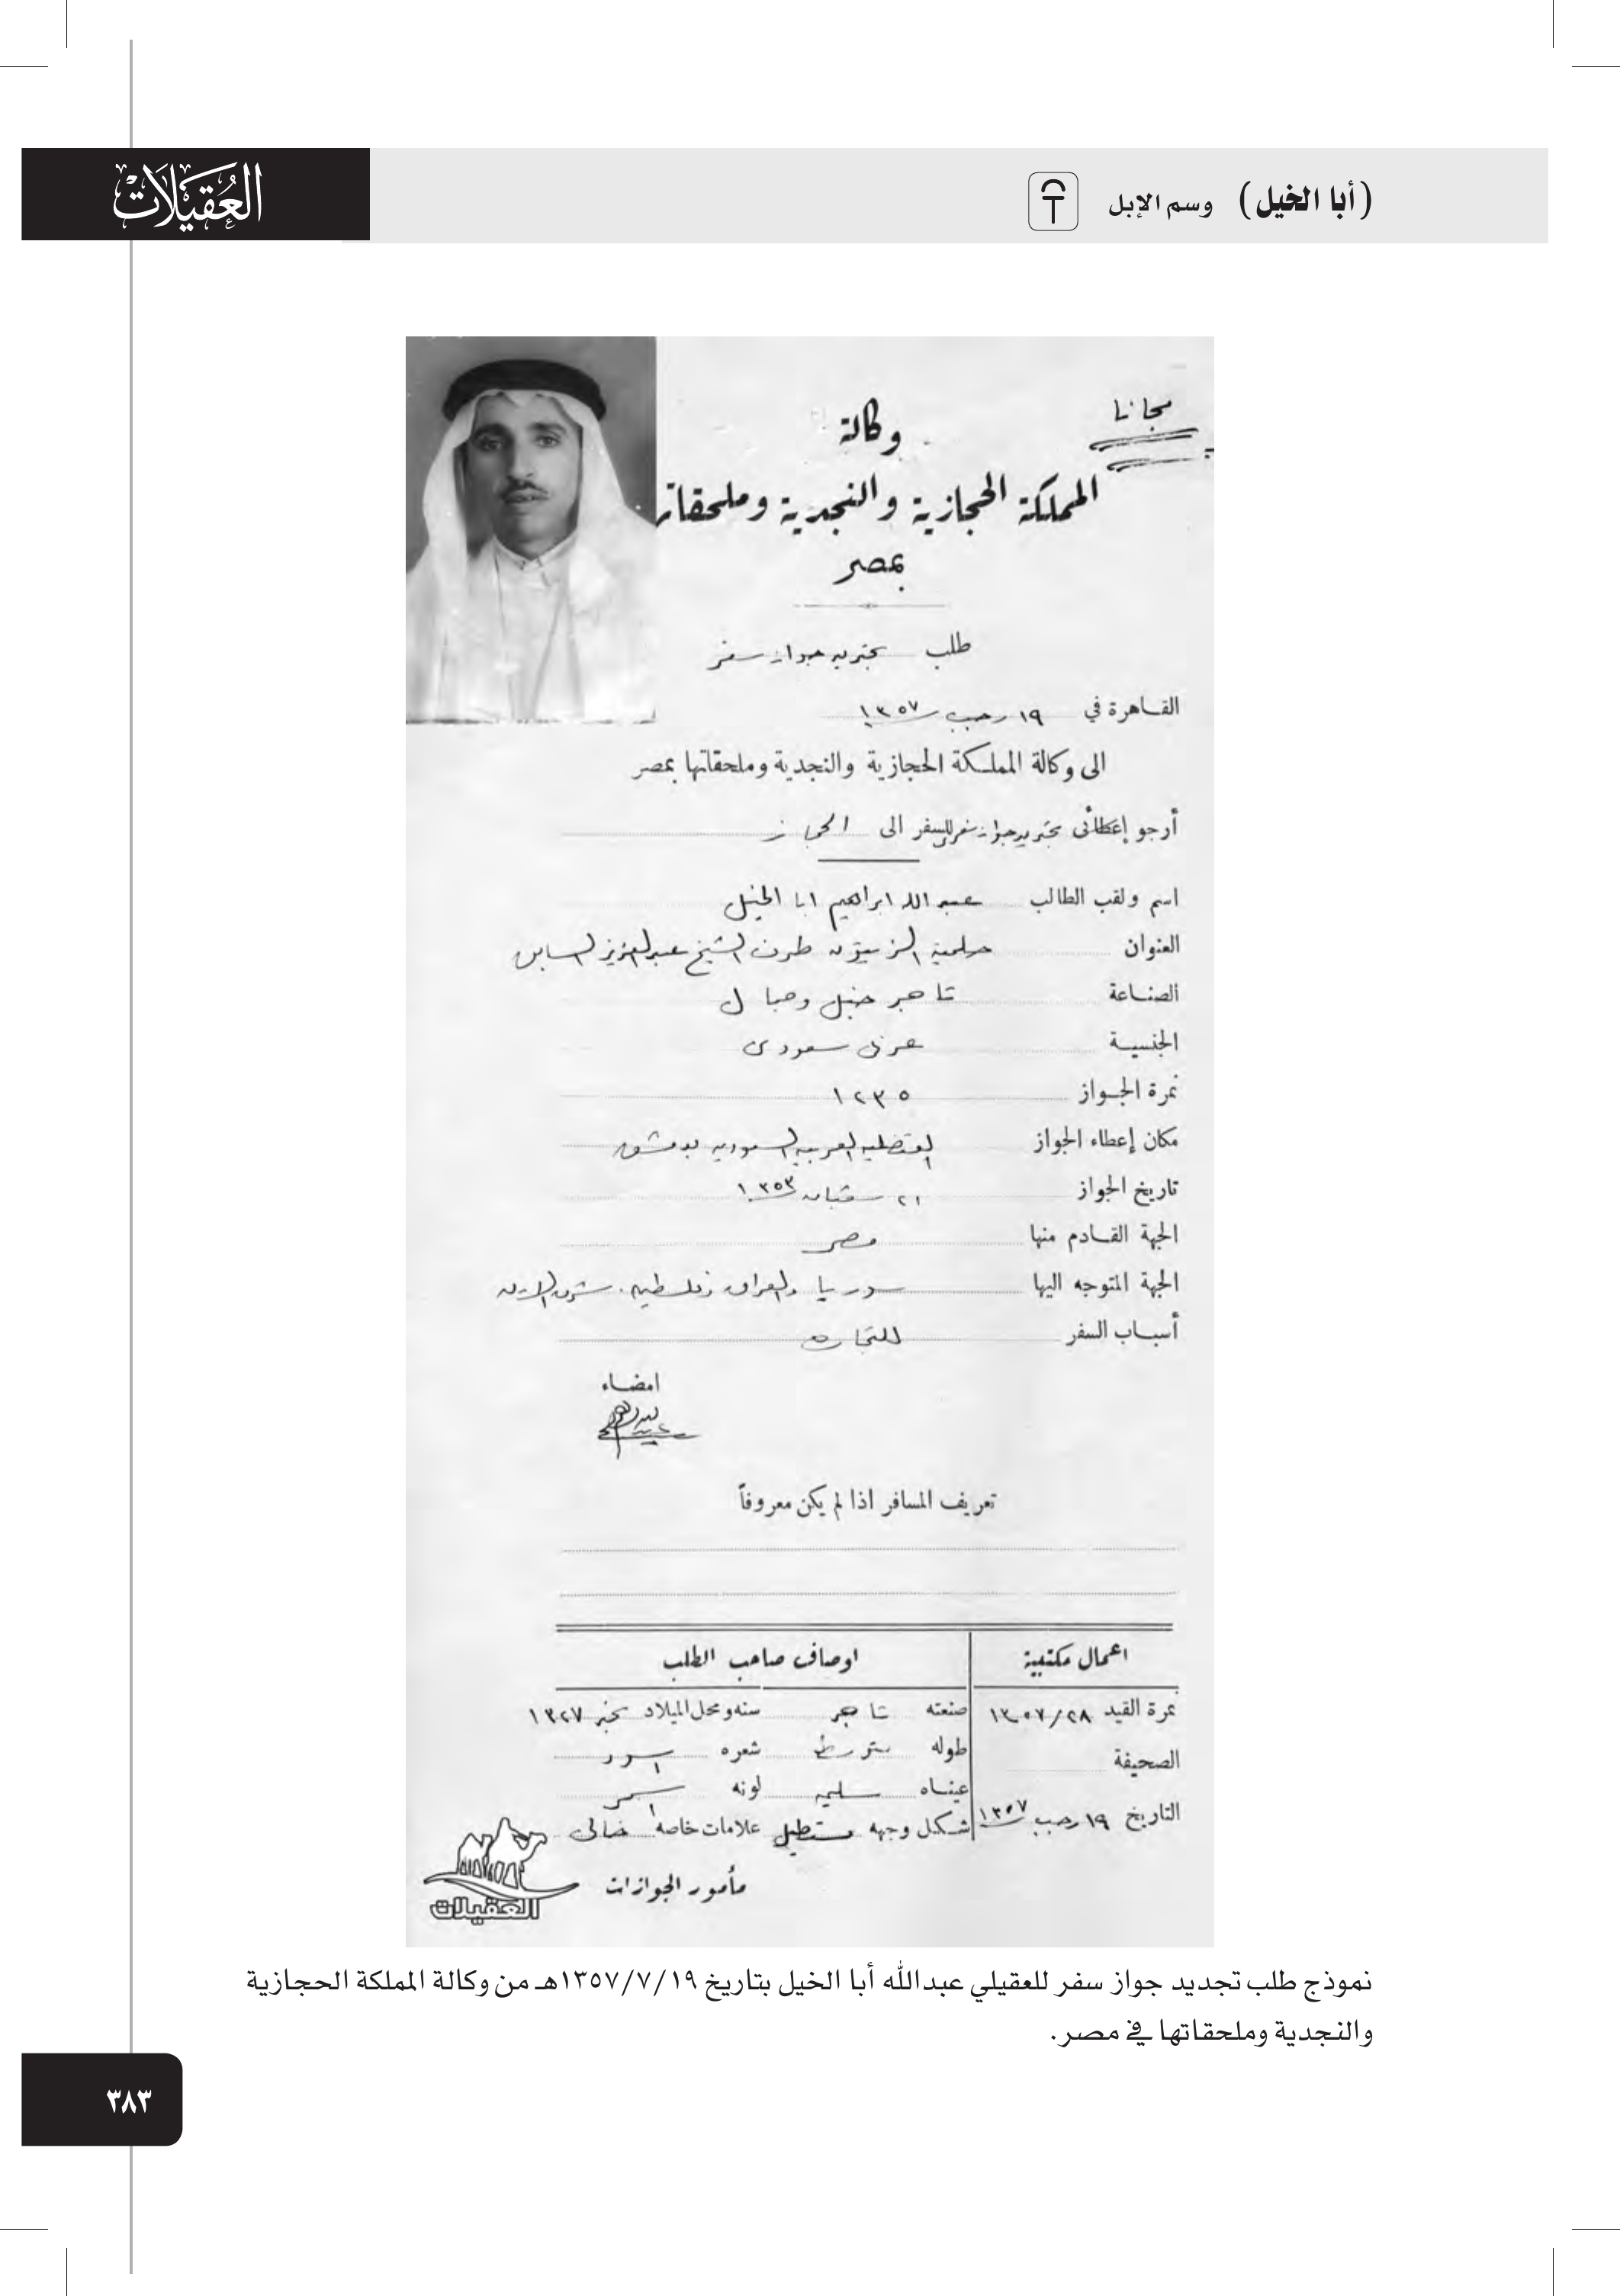 (أبا الخيل) وسم الإبل
العُقيلات
مجانا
وكالة
المملكة الحجازية والنجدية وملحقاتها
بمصر
طلب تجديد جواز سفر
القاهرة في ١٩ رجب ١٣٥٧
الى وكالة المملكة الحجازية والنجدية وملحقاتها بمصر
أرجو إعطائى تجديد جواز سفر للسفر الى الحجاز
اسم ولقب الطالب عبد الله ابراهيم ابا الخيل
العنوان حلمية الزيتون طرف الشيخ عبدالعزيز
الصناعة تاجر خيل وجمال
الجنسية عربى سعودى
نمرة الجواز ١٢٣٥
مكان إعطاء الجواز القنصلية العربية السعودية بدمشق
تاريخ الجواز ٢١ شعبان ١٣٥٣
الجهة القادم منها مصر
الجهة المتوجه اليها سوريا والعراق وفلسطين وشرق الاردن
أسباب السفر للتجارة
امضاء
تعريف المسافر اذا لم يكن معروفاً
اعمال مكتبية
اوصاف صاحب الطلب
نمرة القيد ١٣٥٧/٢٨ صنعته تاجر سنه ومحل الميلاد نجد ١٣٢٧
الصحيفة طوله متوسط شعره اسود
عيناه سليمه لونه اسمر
التاريخ ١٩ رجب ١٣٥٧ شكل وجهه مستطيل علامات خاصه خالى
مأمور الجوازات
العقيلات
نموذج طلب تجديد جواز سفر للعقيلي عبدالله أبا الخيل بتاريخ ١٣٥٧/٧/١٩هـ من وكالة المملكة الحجازية
والنجدية وملحقاتها في مصر.
٣٨٣